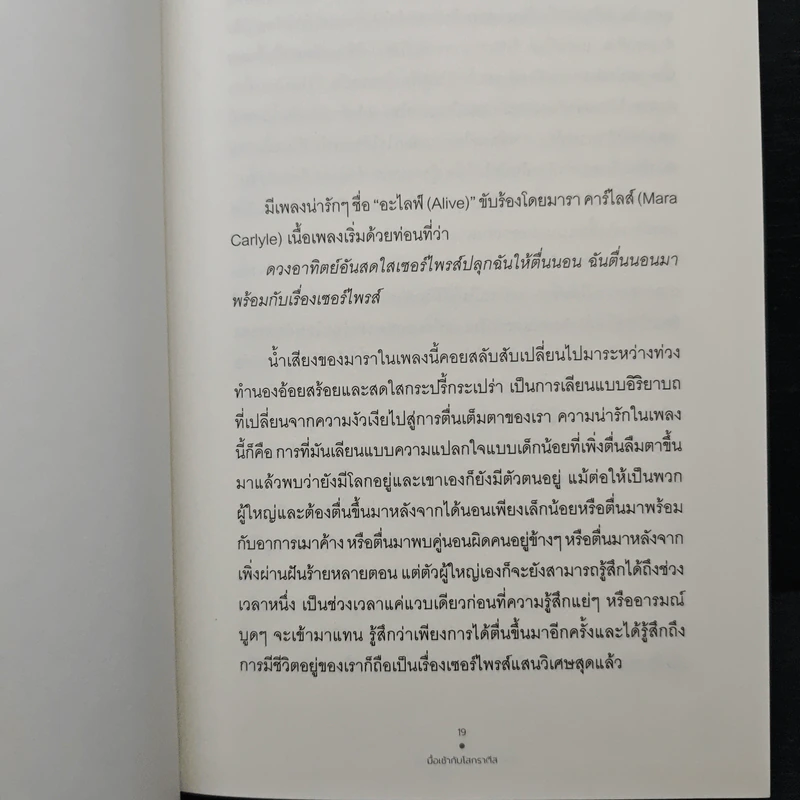 มีเพลงน่ารักๆ ชื่อ “อะไลฟ์ (Alive)” ขับร้องโดยมารา คาร์ไลส์ (Mara
Carlyle) เนื้อเพลงเริ่มด้วยท่อนที่ว่า
ดวงอาทิตย์อันสดใสเซอร์ไพรส์ปลุกฉันให้ตื่นนอน ฉันตื่นนอนมา
พร้อมกับเรื่องเซอร์ไพรส์
น้ำเสียงของมาราในเพลงนี้คอยสลับสับเปลี่ยนไปมาระหว่างท่วง
ทำนองอ้อยสร้อยและสดใสกระปรี้กระเปร่า เป็นการเลียนแบบอิริยาบถ
ที่เปลี่ยนจากความงัวเงียไปสู่การตื่นเต็มตาของเรา ความน่ารักในเพลง
นี้ก็คือ การที่มันเลียนแบบความแปลกใจแบบเด็กน้อยที่เพิ่งตื่นลืมตาขึ้น
มาแล้วพบว่ายังมีโลกอยู่และเขาเองก็ยังมีตัวตนอยู่ แม้ต่อให้เป็นพวก
ผู้ใหญ่และต้องตื่นขึ้นมาหลังจากได้นอนเพียงเล็กน้อยหรือตื่นมาพร้อม
กับอาการเมาค้าง หรือตื่นมาพบคู่นอนผิดคนอยู่ข้างๆ หรือตื่นมาหลังจาก
เพิ่งผ่านฝันร้ายหลายตอน แต่ตัวผู้ใหญ่เองก็จะยังสามารถรู้สึกได้ถึงช่วง
เวลาหนึ่ง เป็นช่วงเวลาแค่แวบเดียวก่อนที่ความรู้สึกแย่ๆ หรืออารมณ์
บูดๆ จะเข้ามาแทน รู้สึกว่าเพียงการได้ตื่นขึ้นมาอีกครั้งและได้รู้สึกถึง
การมีชีวิตอยู่ของเราก็ถือเป็นเรื่องเซอร์ไพรส์แสนวิเศษสุดแล้ว
19
มื้อเช้ากับโสกราตีส